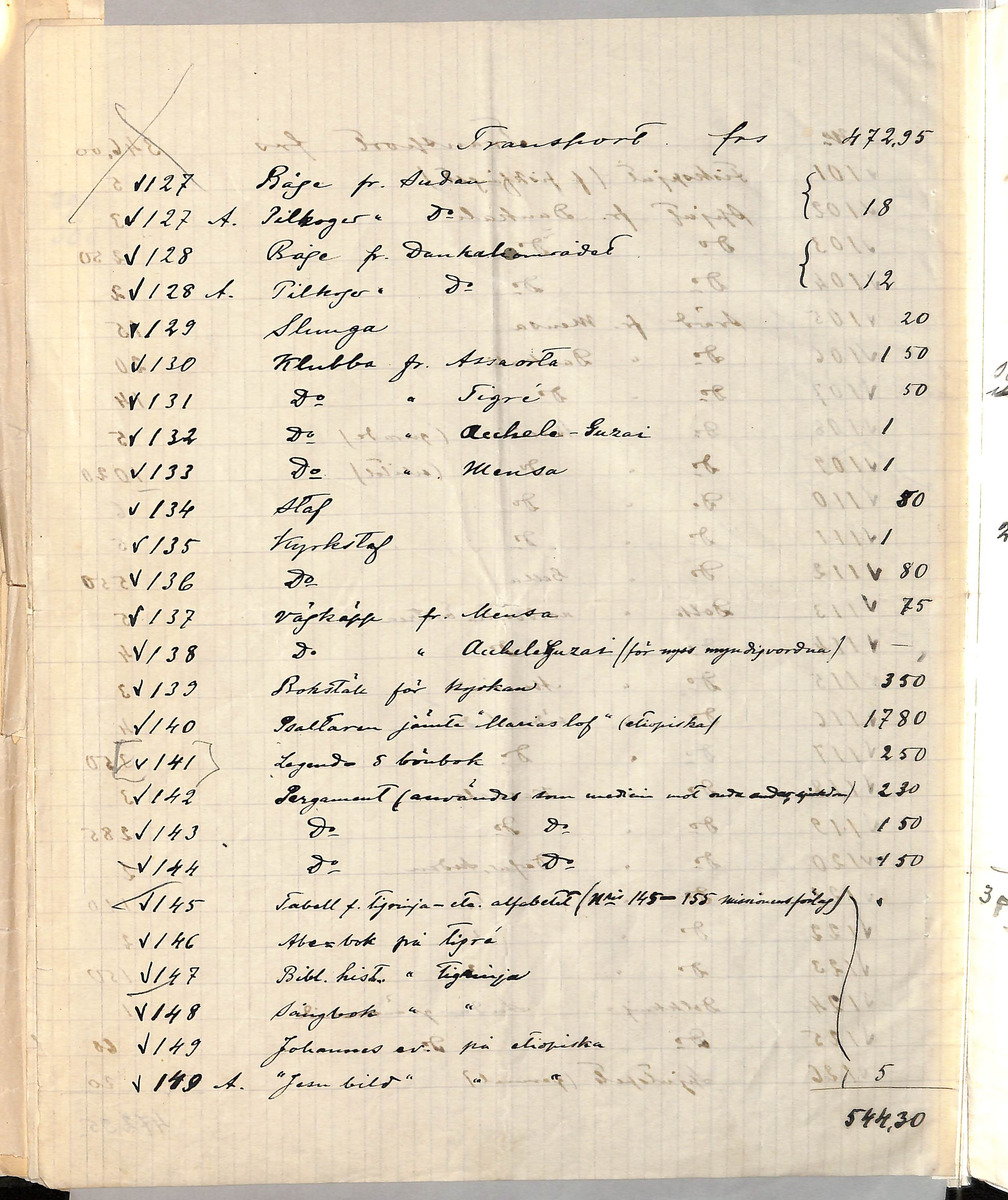 Transport frs 472,95
√ 127 Båge fr. Sudan
√ 127 A. Pilkoger " Do } 18
√ 128 Båge fr. Dankaliområdet
√ 128 A. Pilkoger " Do } 12
√ 129 Slunga 20
√ 130 Klubba fr. Assaorta 1 50
√ 131 Do " Tigré 50
√ 132 Do " Ackele-Guzai 1
√ 133 Do " Mensa 1
√ 134 Staf 80
√ 135 Kyrkstaf 1
√ 136 Do 80
√ 137 Vägkäpp fr. Mensa 75
√ 138 Do " AckeleGuzai (för nyss myndigvordna) —
√ 139 Bokställ för kyrkan 3 50
√ 140 Psaltaren jämte "Marias lof" (etiopiska) 17 80
[√ 141] Legend & bönbok 2 50
√ 142 Pergament (användes som medicin mot onda andar, sjukdom) 2 30
√ 143 Do Do 1 50
√ 144 Do Do 1 50
√ 145 Tabell f. tigrinja- etc. alfabetet (Nris 145–155 missionens förlag)
√ 146 Abc-bok på tigré
√ 147 Bibl. hist. " tigrinja
√ 148 Sångbok " "
√ 149 Johannes ev. på etiopiska
√ 149 A. "Jesu bild" " " 5
544,30